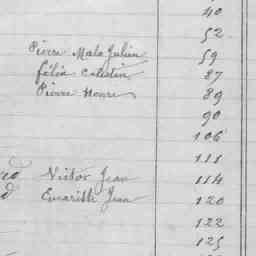 40
52
Pierre Malo Julien 59
félix Célestin 87
Pierre Honre 89
90
106
111
Victor Jean 114
Emarille Jean 120
122
125